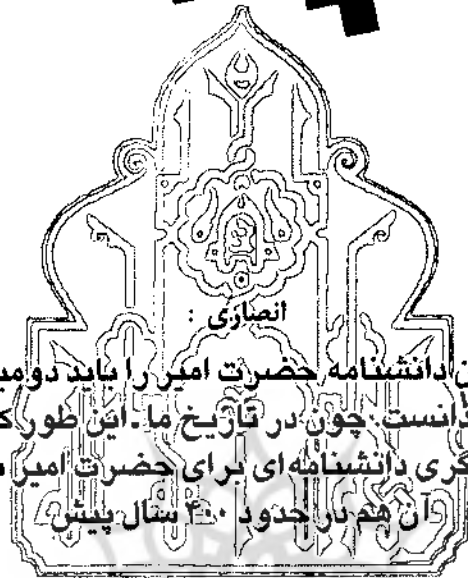 انصاری :
دانشنامه حضرت امیر را باید دومین
دانست. چون در تاریخ ما. این طور که
دیگری دانشنامه‌ای برای حضرت امیر
آن هم در حدود ۴۰۰ سال پیش